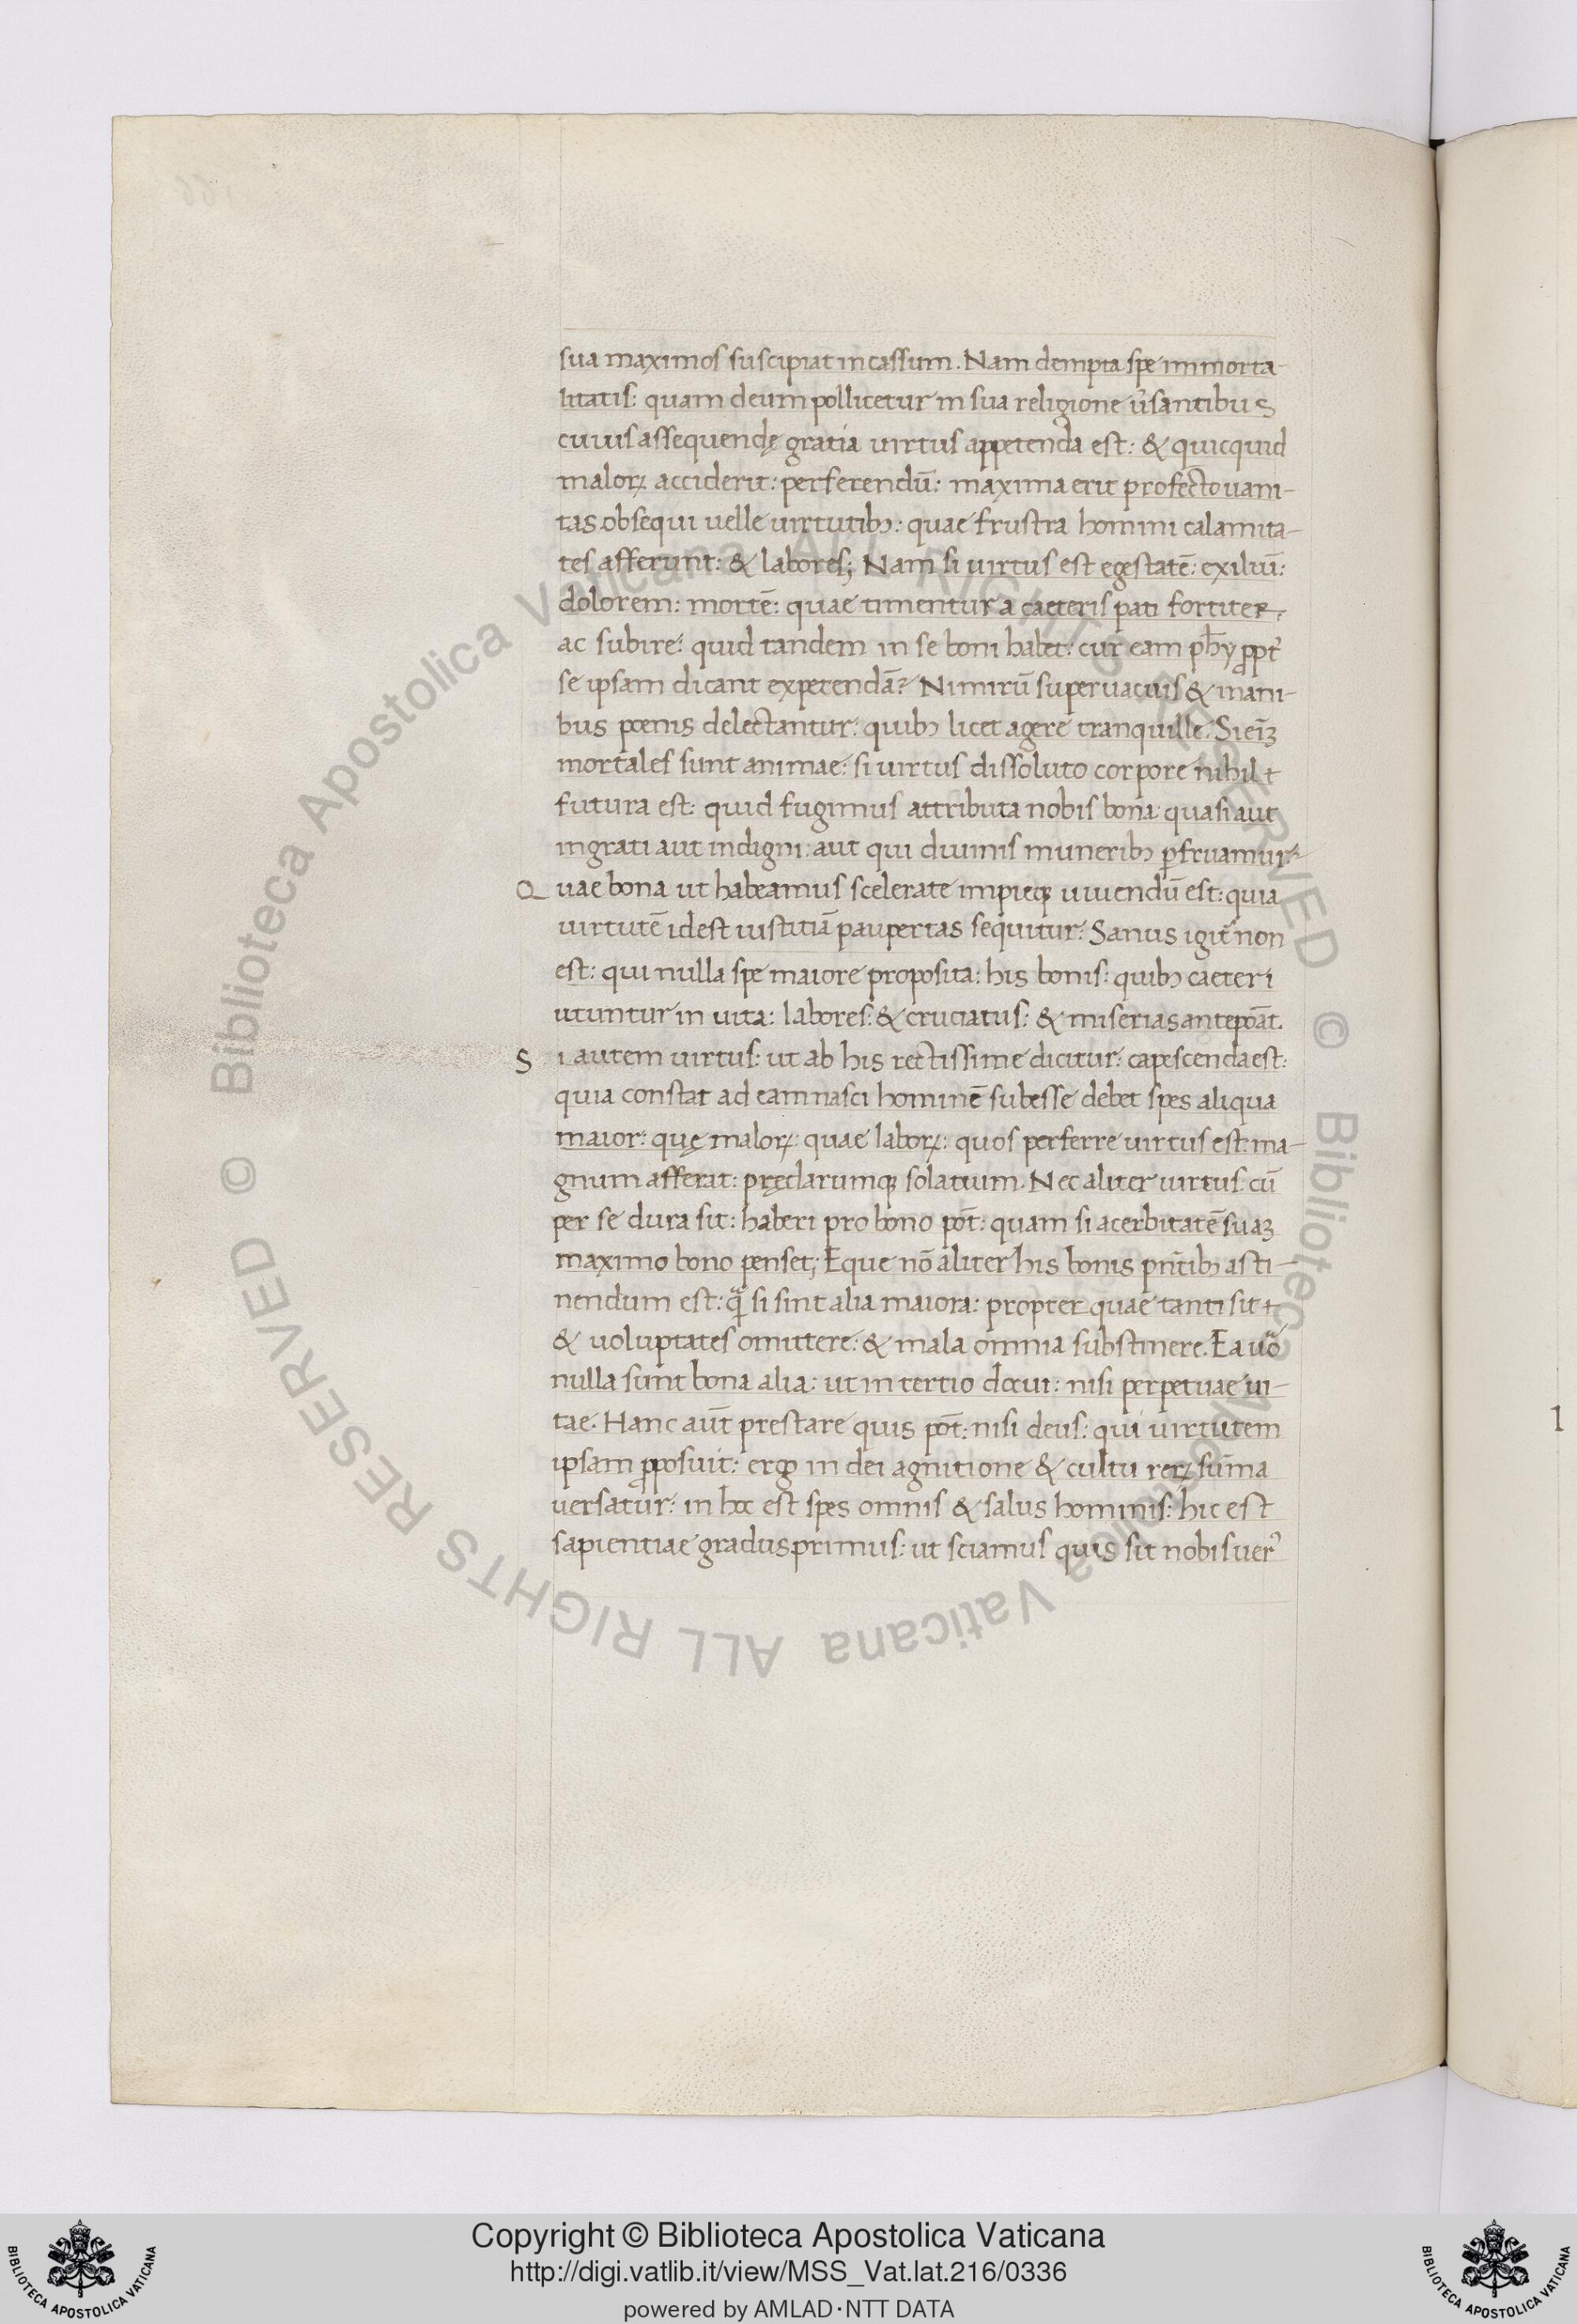 sua maximos suscipiat incassum. Nam dempta spe immorta-
litatis: quam deum pollicetur in sua religione ũsantibus
cuius assequendę gratia uirtus appetenda est: & quicquid
maloꝝ acciderit: perferendū: maxima erit profecto uani-
tas obsequi uelle uirtutibꝰ: quae frustra homini calamita-
tes afferunt: & labores; Nam si uirtus est egestatē: exiliū:
dolorem: mortē: quae timentur a caeteris pati fortiter
ac subire: quid tandem in se boni habet: cur eam pħy ꝓpt̄
se ipsam dicant expetendā? Nimirū superuacuis & inani-
bus poenis delectantur: quibꝰ licet agere tranquille. Si eīꝫ
mortales sunt animae: si uirtus dissoluto corpore nihil t
futura est: quid fugimus attributa nobis bona quasi aut
ingrati aut indigni: aut qui diuinis muneribꝰ ꝑfruamur?
Quae bona ut habeamus scelerate impieqꝫ uiuendū est: quia
uirtutē idest iustitiā paupertas sequitur. Sanus igit̄ non
est: qui nulla spe maiore proposita: his bonis: quibꝰ caeteri
utuntur in uita: labores: & cruciatus: & miserias antepōat.
Si autem uirtus: ut ab his rectissime dicitur: capescenda est:
quia constat ad eam nasci hominē subesse debet spes aliqua
maior: quę maloꝝ: quae laboꝝ: quos perferre uirtus est: ma-
gnum afferat: pręclarumqꝫ solatium. Nec aliter uirtus: cū
per se dura sit: haberi pro bono pōt: quam si acerbitatē suaꝫ
maximo bono penset; Eque nō aliter his bonis pn̄tibꝰ asti-
nendum est: q̄ᷓ si sint alia maiora: propter quae tanti sit t
& uoluptates omittere: & mala omnia substinere. Ea uo᷑
nulla sunt bona alia: ut in tertio docui: nisi perpetuae ui-
tae. Hanc aūt prestare quis pōt: nisi deus: qui uirtutem
ipsam ꝓposuit: ergo in dei agnitione & cultu reꝝ sūma
uersatur: in hoc est spes omnis & salus hominis: hic est
sapientiae gradus primus: ut sciamus quis sit nobis uerꝰ
l
© Biblioteca Apostolica Vaticana ALL RIGHTS RESERVED © Biblioteca Apostolica Vaticana ALL RIGHTS RESERVED
Copyright © Biblioteca Apostolica Vaticana
http://digi.vatlib.it/view/MSS_Vat.lat.216/0336
powered by AMLAD·NTT DATA
BIBLIOTECA APOSTOLICA VATICANA
BIBLIOTECA APOSTOLICA VATICANA